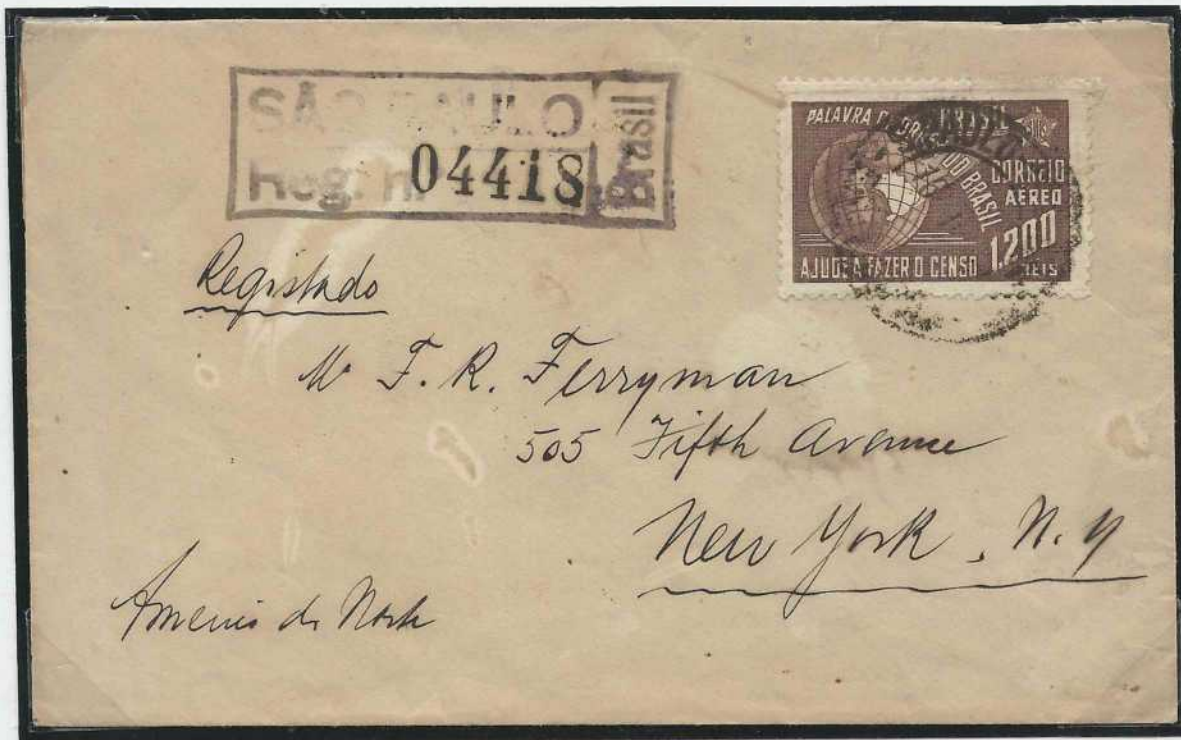 SÃO PAULO
Reg. n. 04418
Brasil
PALAVRA DE ORDEM DO BRASIL
BRASIL
CORREIO
AÉREO
1.200
RÉIS
AJUDE A FAZER O CENSO
Registado
Mr F. R. Ferryman
505 Fifth Avenue
New York, N. Y
America do Norte